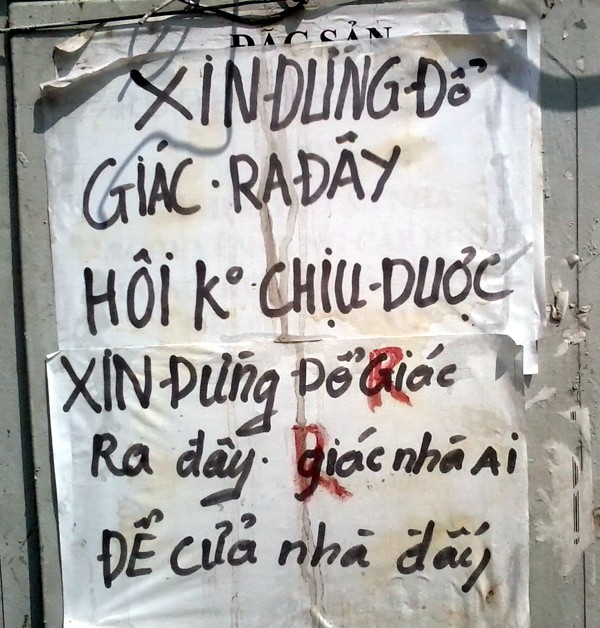 ĐẶC SẢN
XIN ĐỪNG ĐỔ
GIÁC. RA ĐÂY
HÔI K° CHỊU DƯỢC
XIN ĐỪNG Đổ Giác
Ra đây. giác nhà Ai
ĐỂ cửa nhà đấy